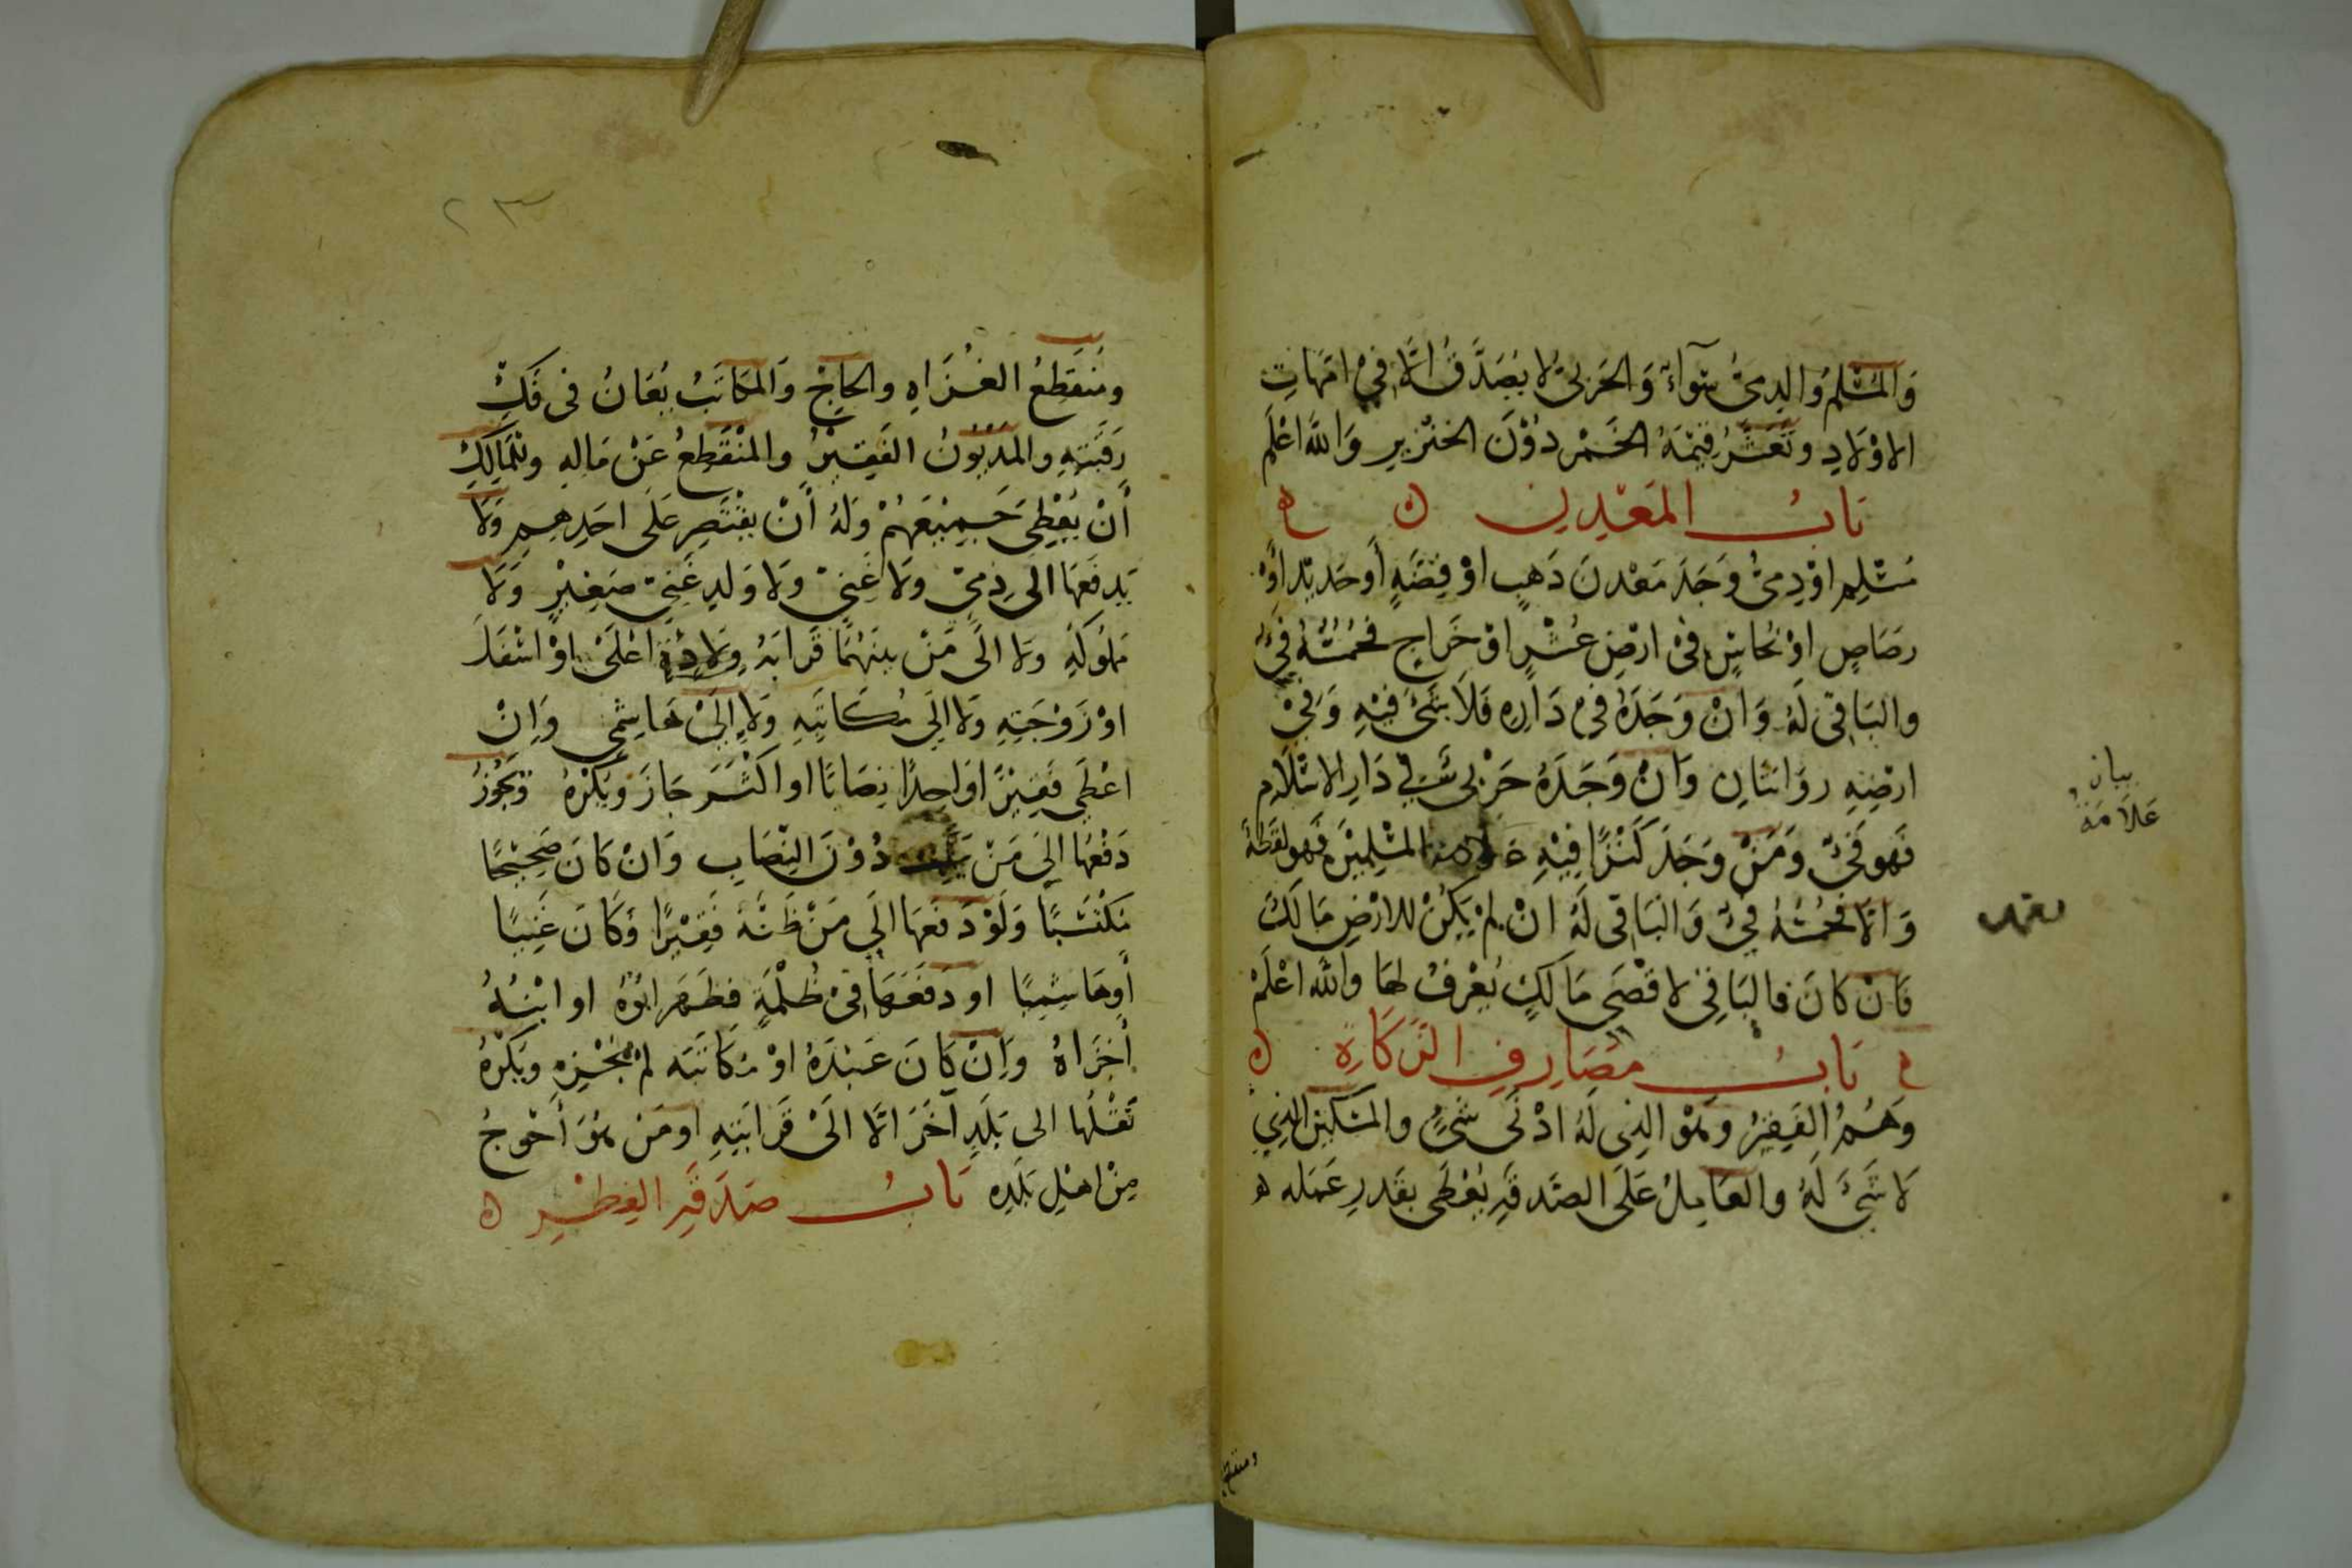 وَالمُسْلِمُ وَالذِمىُّ سَوآءٌ وَالحَربىُّ لا يُصَدَّقُ الَّا فِيْ امَّهَاتِ
الاوْلَادِ وتُعَشَّرُ قِيْمَةُ الخَمْرِ دُوْنَ الخنْزِيرِ وَاللَّه اعْلَم
بَابُ المَعْدِنِ
مُسْلِم اوْ ذِمىٌّ وَجَدَ مَعْدنَ ذَهبٍ اوْ فِضَّةٍ أَو حَديْد اَوْ
رصَاصٍ اوْ نُحَاسٍ فىْ ارْضِ عُشْرٍ اوْ خَرَاجٍ فخُمُسُهُ فَيْءٌ
والبَاقى لَهُ وَانْ وَجَدَهُ فىْ دَارِهِ فَلَا شَىْءَ فِيْهِ وَفِيْ
ارْضِهِ روَايتَانِ وَانْ وَجَدَهُ حَرْبى فى دَارِ الاسْلَامِ
فَهو فَىْءٌ وَمَنْ وَجَدَ كَنْزًا فِيْهِ علامة المسْلِميْنَ فَهو لقَطَةٌ
وَالَّا فخُمُسُهُ فَيْءٌ وَالبَاقى لَهُ انْ لمْ يَكُنْ للارْضِ مَالكٌ
فَانْ كَانَ فالبَاقي لاقْصَى مَالكٍ يُعْرفُ لهَا واللَّه اعْلَمْ
بَابُ مَصَارِفِ الزَكَاةِ
وَهُمُ الفَقِيْرُ وَهُوَ الذِى لَهُ ادْنَى شَىْءٍ والمسْكيْنُ الذِي
لَا شَىْءَ لَهُ والعَامِلُ عَلَى الصَّدقَةِ يُعْطَى بقَدرِ عَمَله
بيان
عَلَامَة
ومنقطع
٢٣
ومُنقَطِعُ الغُزَاهِ والحَاجِّ وَالمكَاتَبُ يُعَانُ فى فَكِّ
رَقَبَتهِ والمَدْيُوْنُ الفَقِيْرُ والمنْقَطِعُ عَنْ مَالهِ وللمَالِكِ
أنْ يُعْطِىَ جَمِيْعَهُمْ وَلهُ أَنْ يقْتَصِرَ عَلَى احَدِهِم وَلَا
يَدفَعهَا الى ذِمىّ ولَا غَنىّ وَلا وَلدِ غَنىّ صَغِيْرٍ وَلَا
مملُوكهِ ولا الَى مَنْ بينَهُمَا قَرابَةُ وِلَادَةٍ اعْلَىْ اوْ اسْفَلَ
اوْ زَوْجَتِهِ وَلا الَى مُكَاتَبِهِ وَلا إلَىْ هَاشِمى وَانْ
اعْطَى فَقِيْرًا وَاحِدًا نِصَابًا او اكْثَرَ جَازَ وَيُكْرَهُ وَيَجُوْزُ
دَفْعُهَا الَى مَنْ يملك دُوْنَ النِصَابِ وَانْ كَانَ صَحِيْحًا
مكْتَسبًا وَلَوْ دَفعَهَا الَى مَنْ ظَنَّهُ فَقِيْرًا وَكَانَ غَنِيًا
أَو هَاشِمِيًا او دَفَعَهَا فىْ ظُلْمَةٍ فظَهَرَ ابُوْهُ او ابْنُهُ
أجْزَاهُ وَانْ كَانَ عَبْدَهُ اوْ مُكَاتَبَه لمْ يُجْزِهِ ويُكْرَهُ
نَقْلُهَا الى بَلَدٍ آخَرَ الَّا الَىْ قَرَابَتِهِ اومَن هُوَ أحْوجُ
مِنْ اهْلِ بَلَدِه بَابُ صَدَقَةِ الفِطْرِ